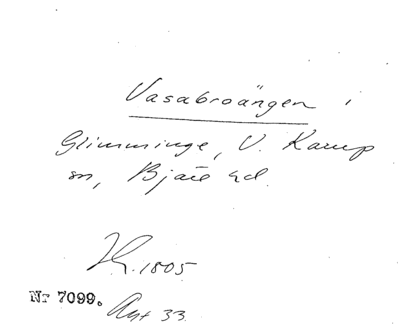 Vasabroängen i
Glimminge, V. Karup
sn, Bjäre hd.
1805
Nr 7099.
33